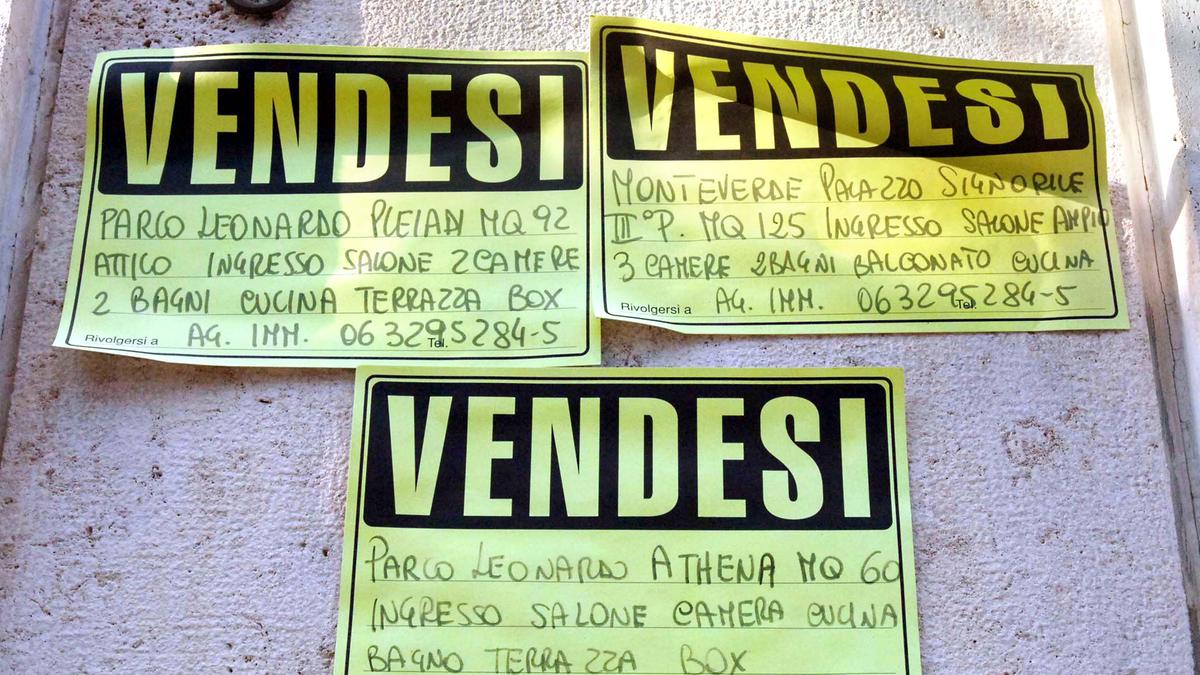 VENDESI
PARCO LEONARDO PLEIADI MQ 92
ATTICO INGRESSO SALONE 2 CAMERE
2 BAGNI CUCINA TERRAZZA BOX
Rivolgersi a AG. IMM. Tel. 063295284-5
VENDESI
MONTEVERDE PALAZZO SIGNORILE
III° P. MQ 125 INGRESSO SALONE AMPIO
3 CAMERE 2 BAGNI BALCONATO CUCINA
Rivolgersi a AG. IMM. Tel. 063295284-5
VENDESI
PARCO LEONARDO ATHENA MQ 60
INGRESSO SALONE CAMERA CUCINA
BAGNO TERRAZZA BOX